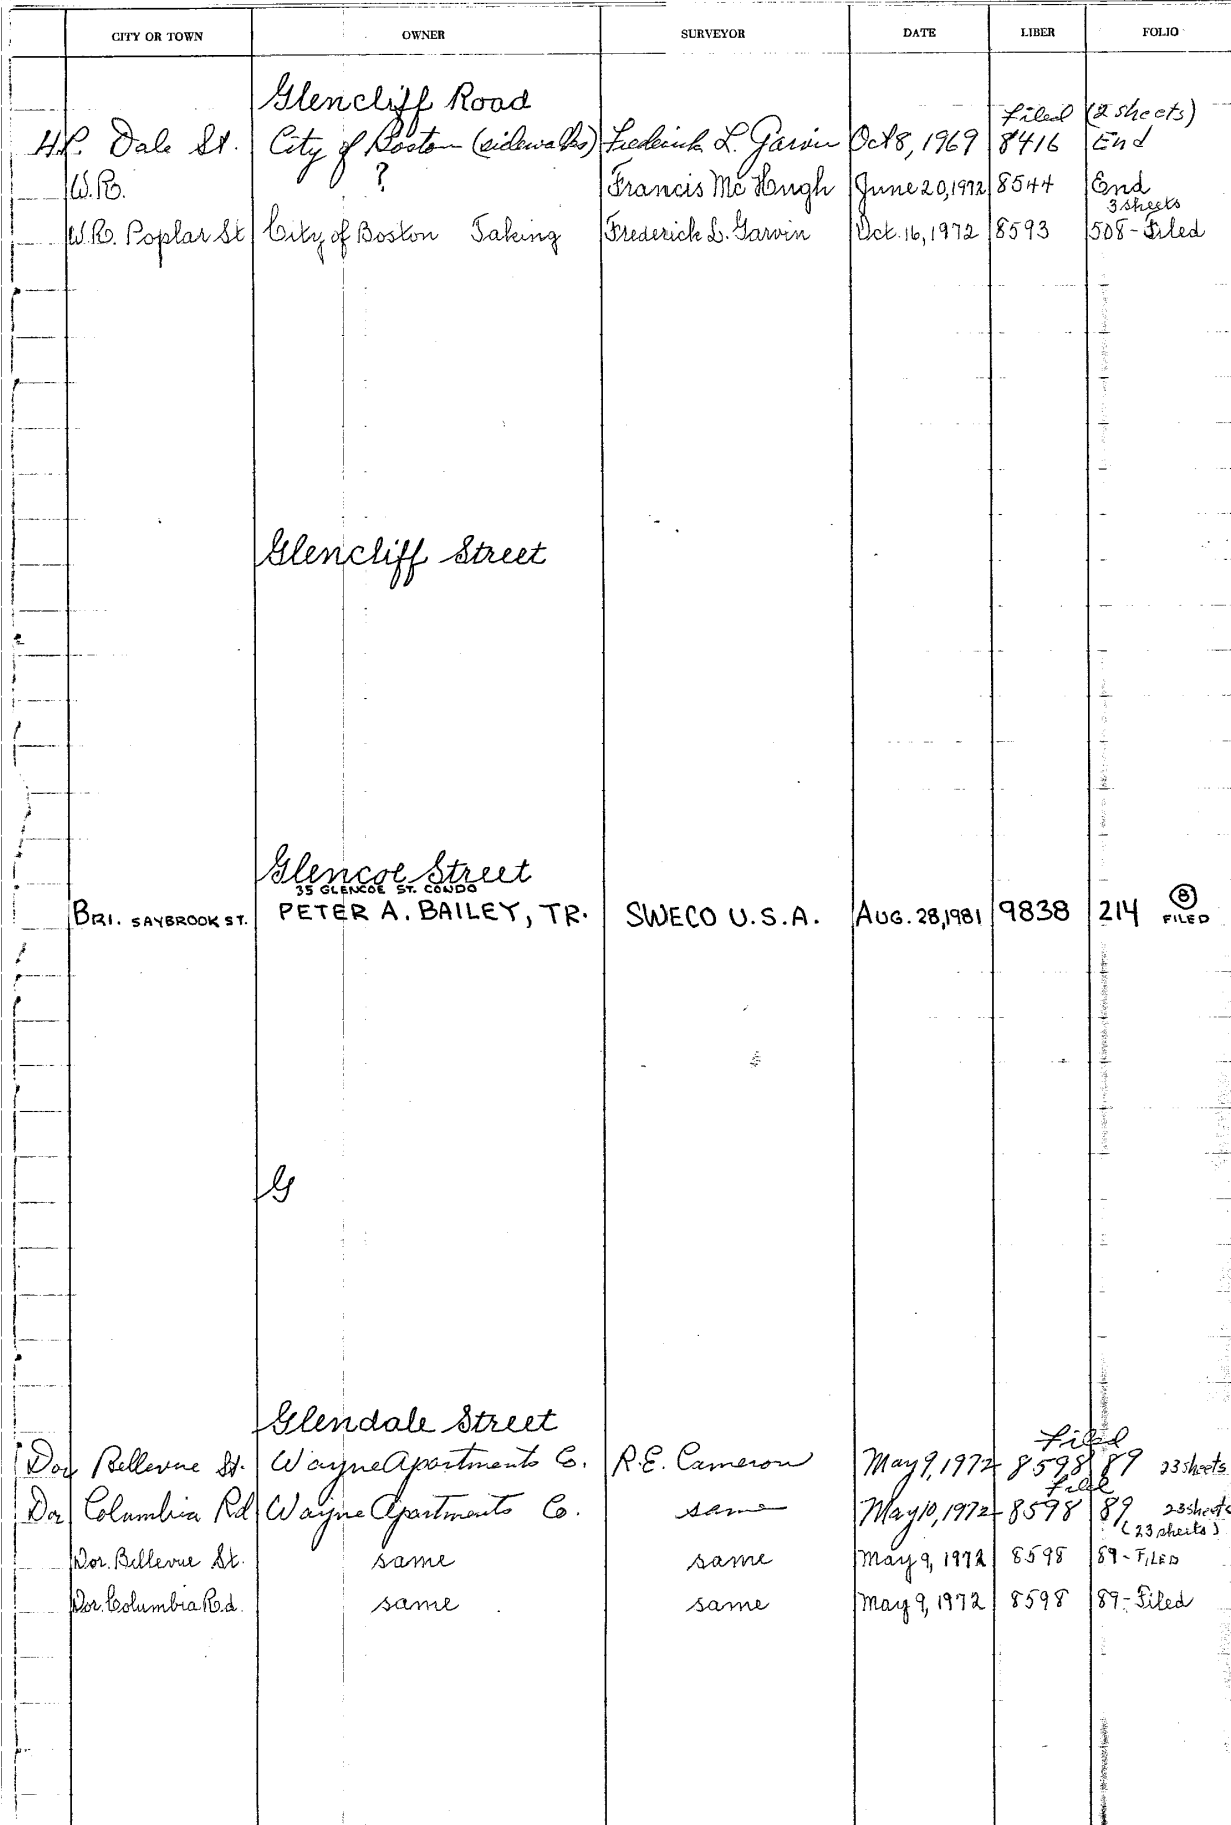 CITY OR TOWN OWNER SURVEYOR DATE LIBER FOLIO
Glencliff Road
Filed (2 sheets)
H.P. Dale St. City of Boston (sidewalks) Frederick L. Garvin Oct 8, 1969 8416 End
W.R. ? Francis Mc Hugh June 20, 1972 8544 End
3 sheets
W.R. Poplar St City of Boston Taking Frederick L. Garvin Oct. 16, 1972 8593 508-Filed
Glencliff Street
Glencoe Street
35 GLENCOE ST. CONDO
BRI. SAYBROOK ST. PETER A. BAILEY, TR. SWECO U.S.A. AUG. 28, 1981 9838 214 8 FILED
G
Glendale Street
Filed
Dor Bellevue St. Wayne Apartments Co. R.E. Cameron May 9, 1972 8598 89 23 sheets
Filed
Dor Columbia Rd Wayne Apartments Co. same May 10, 1972 8598 89 23 sheets
(23 sheets)
Dor. Bellevue St. same same May 9, 1972 8598 89-FILED
Dor. Columbia Rd. same same May 9, 1972 8598 89-Filed